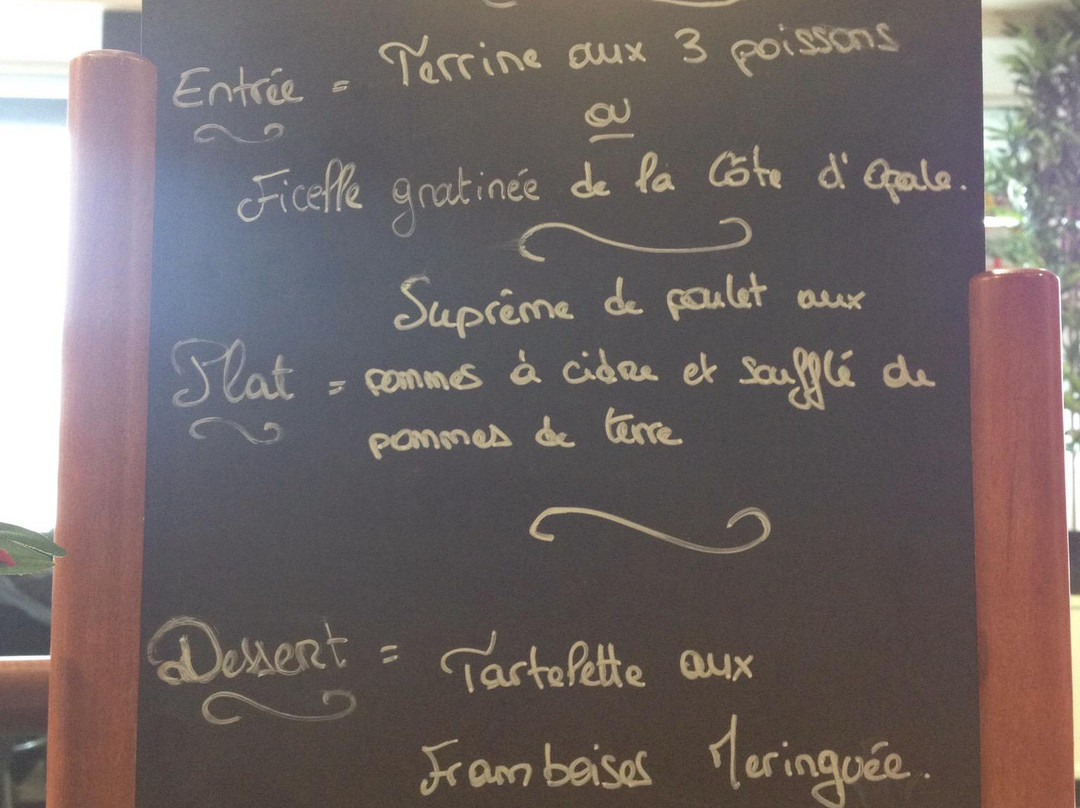 Entrée = Terrine aux 3 poissons
ou
Ficelle gratinée de la Côte d'Opale.
Suprême de poulet aux
Plat = pommes à cidre et soufflé de
pommes de terre
Dessert = Tartelette aux
Framboises Meringuée.